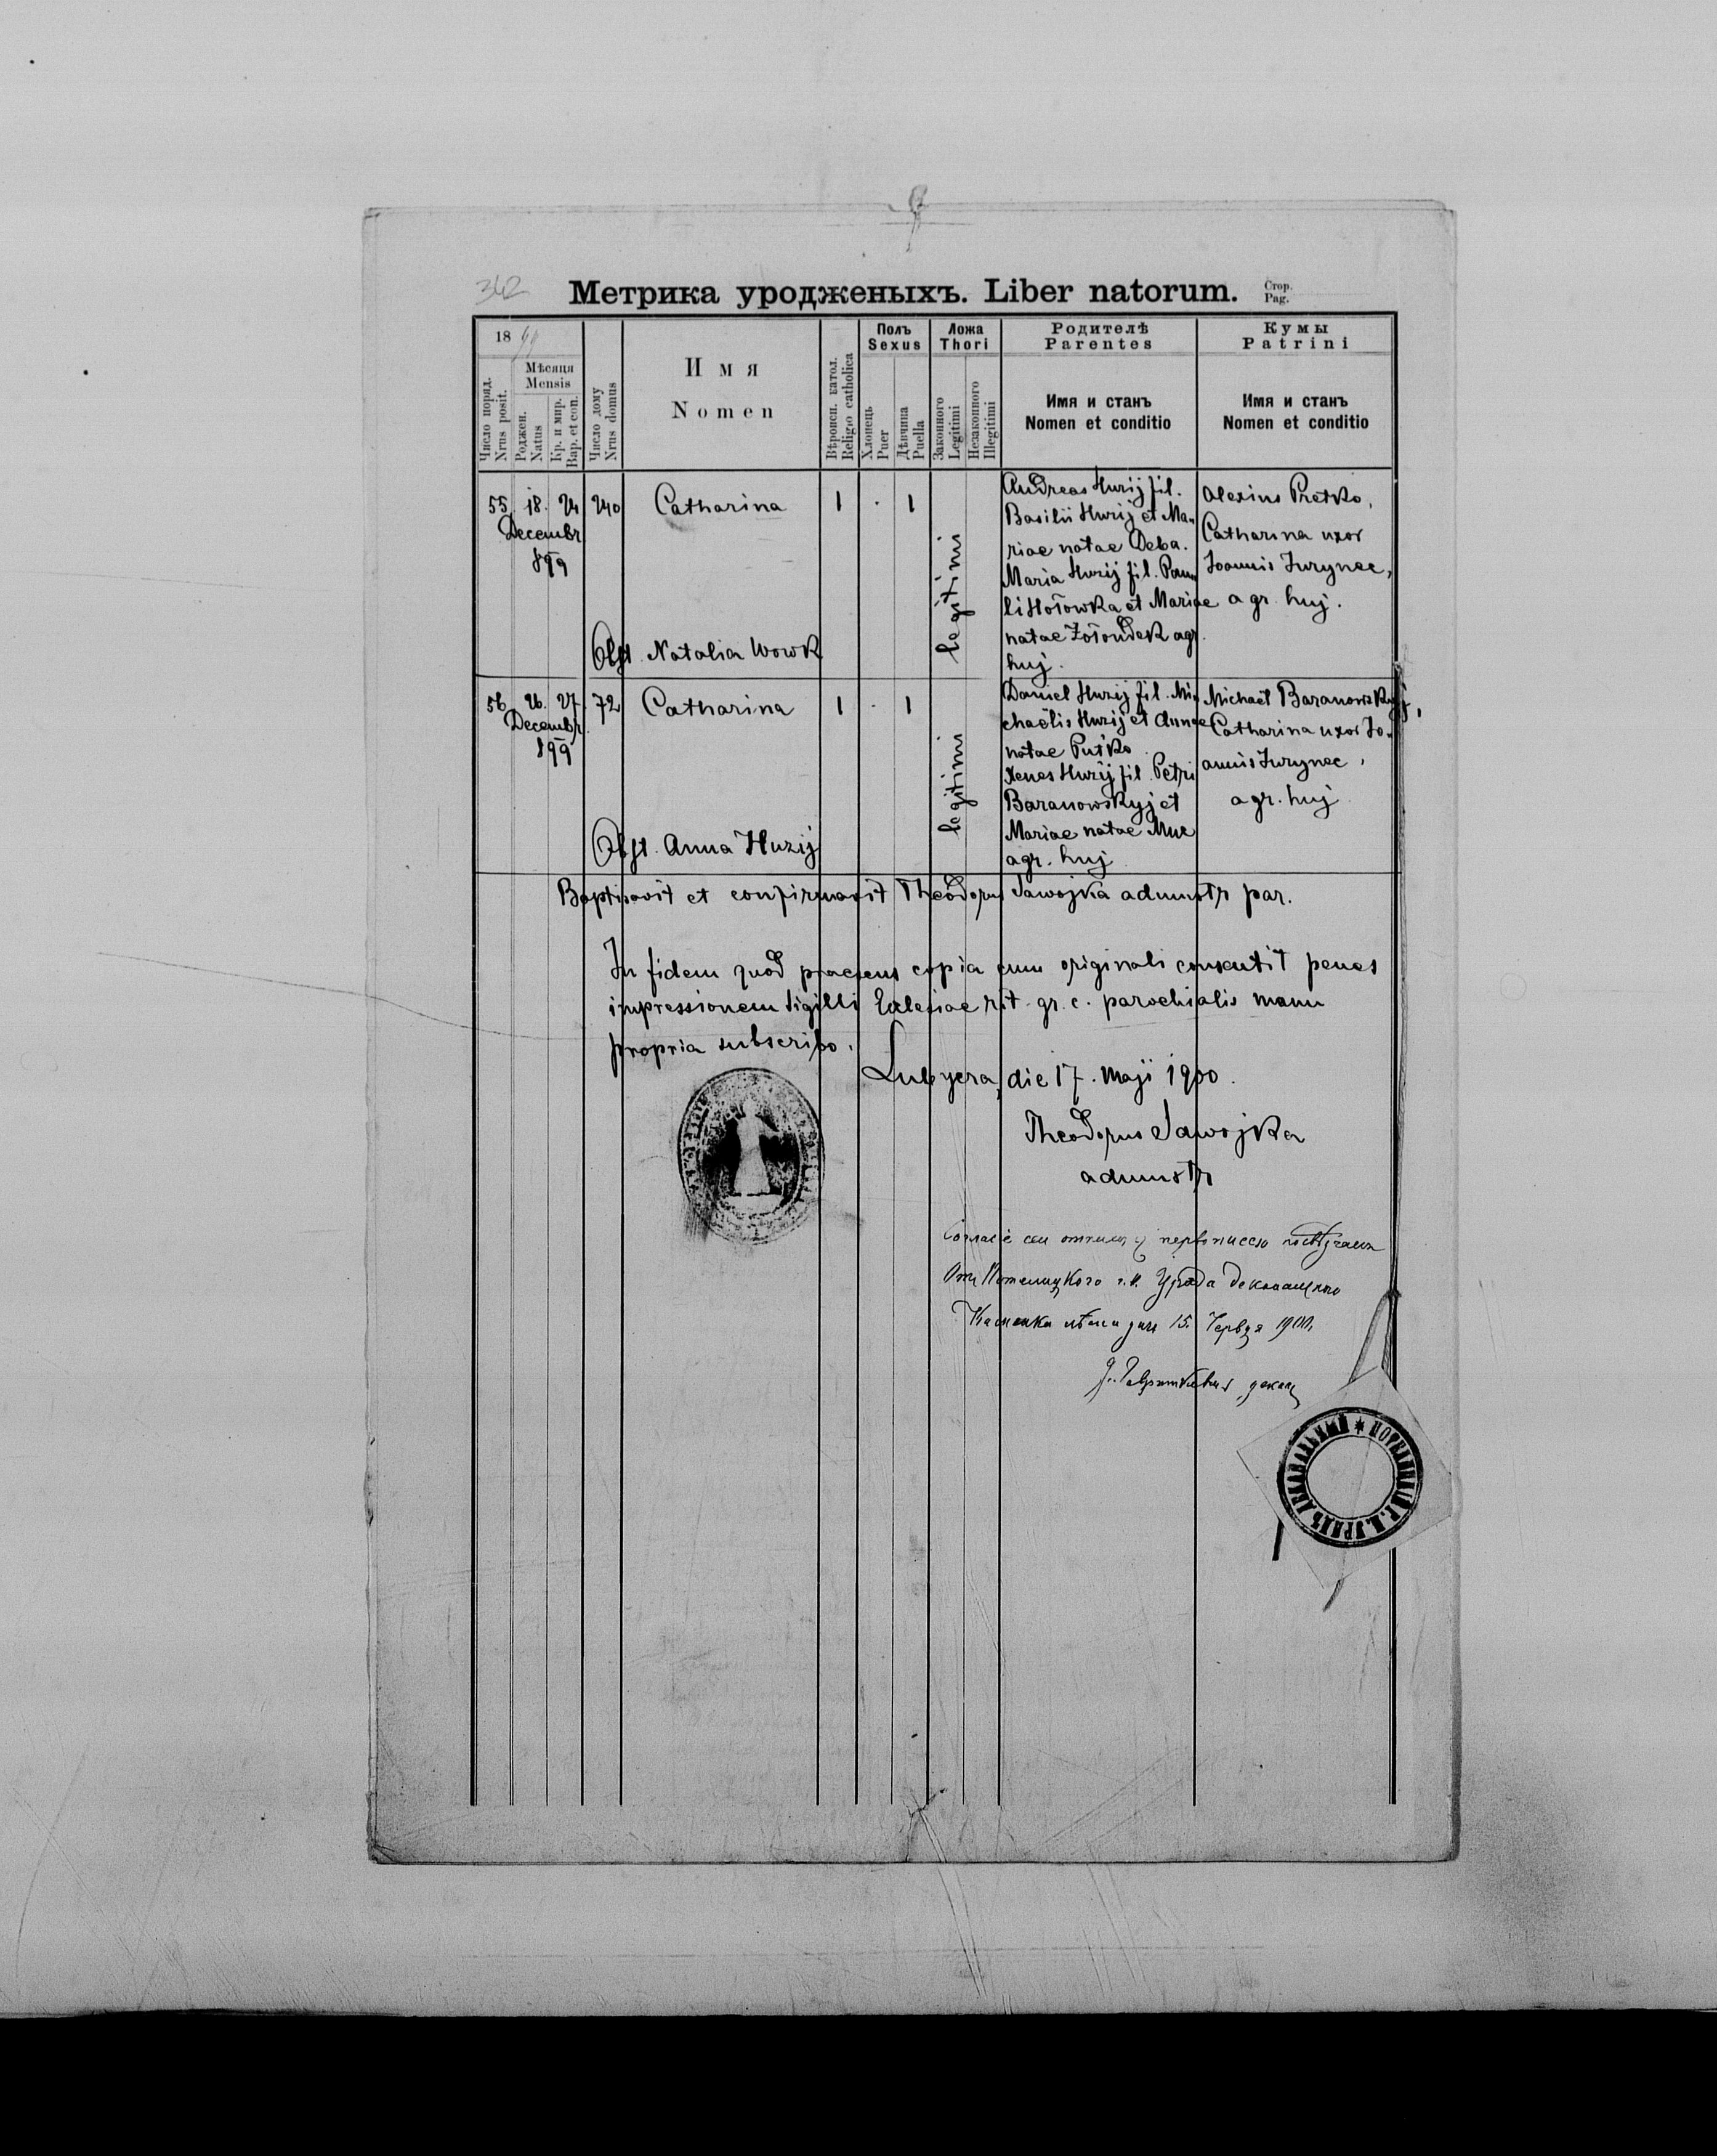 342
Метрика уродженыхъ. Liber natorum.
Стор.
Pag.
18 99
Число поряд.
Nrus posit.
Мѣсяця
Mensis
Роджен.
Natus
Кр. и мир.
Bap. et con.
Число дому
Nrus domus
Имя
Nomen
Вѣроисп. катол.
Religio catholica
Полъ
Sexus
Хлопець
Puer
Дѣвчина
Puella
Ложа
Thori
Законного
Legitimi
Незаконного
Illegitimi
Родителѣ
Parentes
Имя и станъ
Nomen et conditio
Кумы
Patrini
Имя и станъ
Nomen et conditio
55. 18. 24
Decembr
899
240
Catharina
1 . 1
legitimi
Andreas Huzij fil.
Basilii Huzij et Ma-
riae natae Deba.
Maria Huzij fil. Pau-
li Hołowka et Mariae
natae Żołondek agr.
huj.
Alexius Pretko,
Catharina uxor
Joannis Jurynec,
agr. huj.
Obst. Natalia Wowk
56. 26. 27.
Decembr.
899
72
Catharina
1 . 1
legitimi
Daniel Huzij fil. Mi-
chaëlis Huzij et Annae
natae Puťko
Xenes Huzij fil. Petri
Baranowskyj et
Mariae natae Muz
agr. huj
Michaël Baranowskyj,
Catharina uxor Jo-
annis Jurynec,
agr. huj
Obst. Anna Huzij
Baptisavit et confirmavit Theodorus Sawojka adminstr par.
In fidem quod praesens copia cum originali consentit penes
impressionem sigilli Ecclesiae rit. gr. c. parochialis manu
propria subscribo.
Lubycza, die 17. Maji 1900.
Theodorus Sawojka
adminstr
первописею посвѣдчаемъ
Отъ Потелицкого г.к. Уряда деканального
Каменка лѣсна дня 15. Червця 1900.
декан
ПОТЕЛИЦКІЙ Г. К. УРЯДЪ ДЕКАНАЛЬНЫЙ *